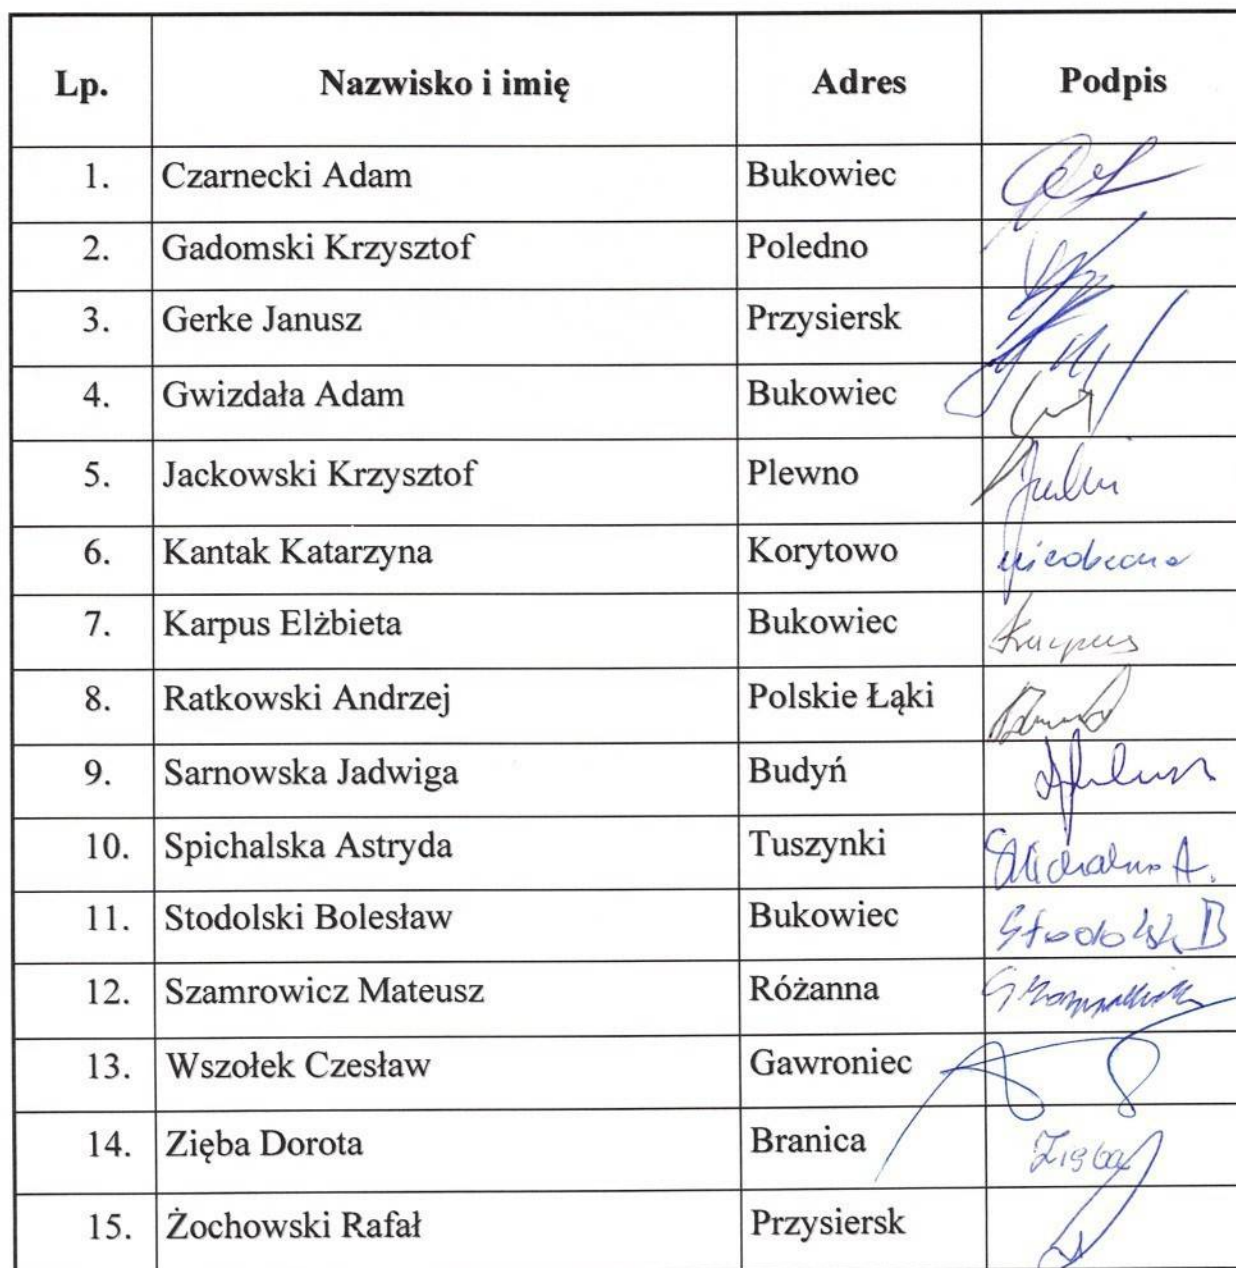 Lp. Nazwisko i imię Adres Podpis
1. Czarnecki Adam Bukowiec
2. Gadomski Krzysztof Poledno
3. Gerke Janusz Przysiersk
4. Gwizdała Adam Bukowiec
5. Jackowski Krzysztof Plewno
6. Kantak Katarzyna Korytowo nieobecna
7. Karpus Elżbieta Bukowiec Karpus
8. Ratkowski Andrzej Polskie Łąki
9. Sarnowska Jadwiga Budyń
10. Spichalska Astryda Tuszynki
11. Stodolski Bolesław Bukowiec Stodolski B
12. Szamrowicz Mateusz Różanna
13. Wszołek Czesław Gawroniec
14. Zięba Dorota Branica Zięba
15. Żochowski Rafał Przysiersk